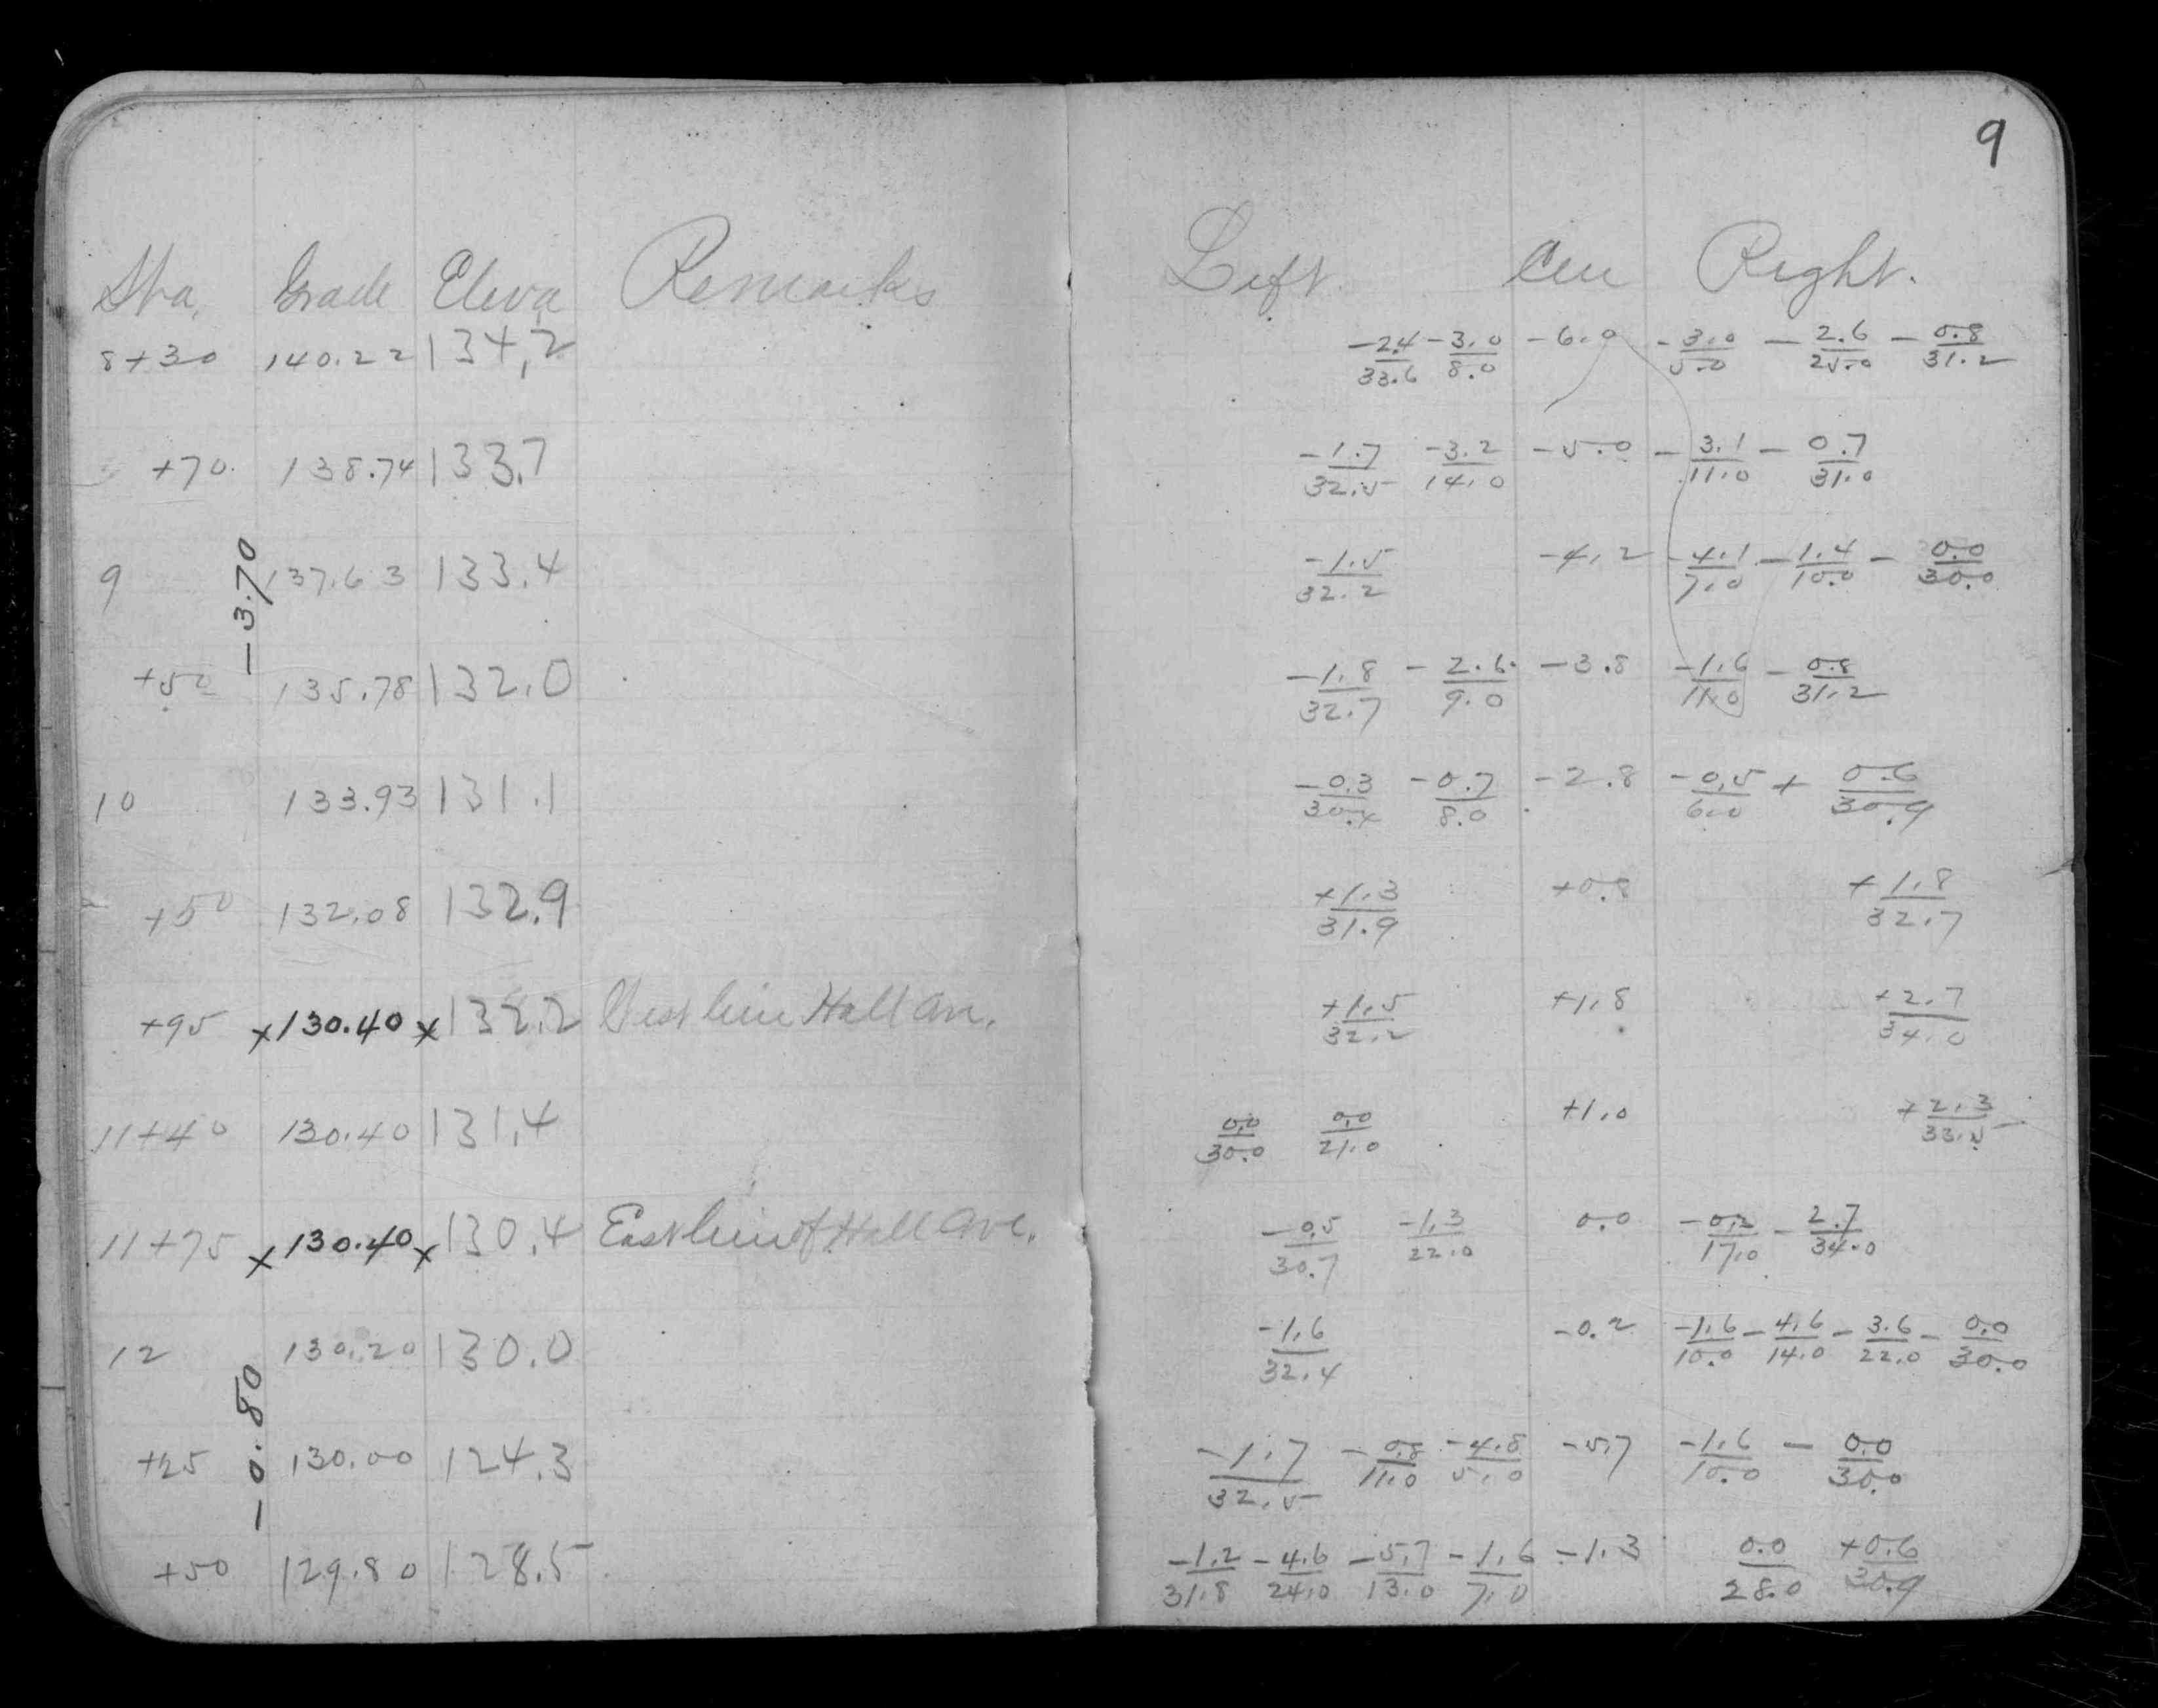 9
Sta. Grade Eleva Remarks Left Cen Right.
8+30 140.22 134.2 -2.4/33.6 -3.0/8.0 -6.0 -3.0/5.0 -2.6/25.0 -0.8/31.2
+70 138.74 133.7 -1.7/32.5 -3.2/14.0 -5.0 -3.1/11.0 -0.7/31.0
-3.70
9 137.63 133.4 -1.5/32.2 -4.2 -4.1/7.0 -1.4/10.0 -0.0/30.0
+50 135.78 132.0 -1.8/32.7 -2.6/9.0 -3.8 -1.6/11.0 -0.8/31.2
10 133.93 131.1 -0.3/30.4 -0.7/8.0 -2.8 -0.5/6.0 +0.6/30.9
+50 132.08 132.9 +1.3/31.9 +0.8 +1.8/32.7
+95 x130.40 x132.2 West line Hall Av. +1.5/32.2 +1.8 +2.7/34.0
11+40 130.40 131.4 0.0/30.0 0.0/21.0 +1.0 +2.3/33.5
11+75 x130.40 x130.4 East line of Hall Ave. -0.5/30.7 -1.3/22.0 0.0 -0.2/17.0 -2.7/34.0
12 130.20 130.0 -1.6/32.4 -0.2 -1.6/10.0 -4.6/14.0 -3.6/22.0 -0.0/30.0
-0.80
+25 130.00 124.3 -1.7/32.5 -0.8/11.0 -4.8/5.0 -5.7 -1.6/10.0 -0.0/30.0
+50 129.80 128.5 -1.2/31.8 -4.6/24.0 -5.7/13.0 -1.6/7.0 -1.3 0.0/28.0 +0.6/30.9